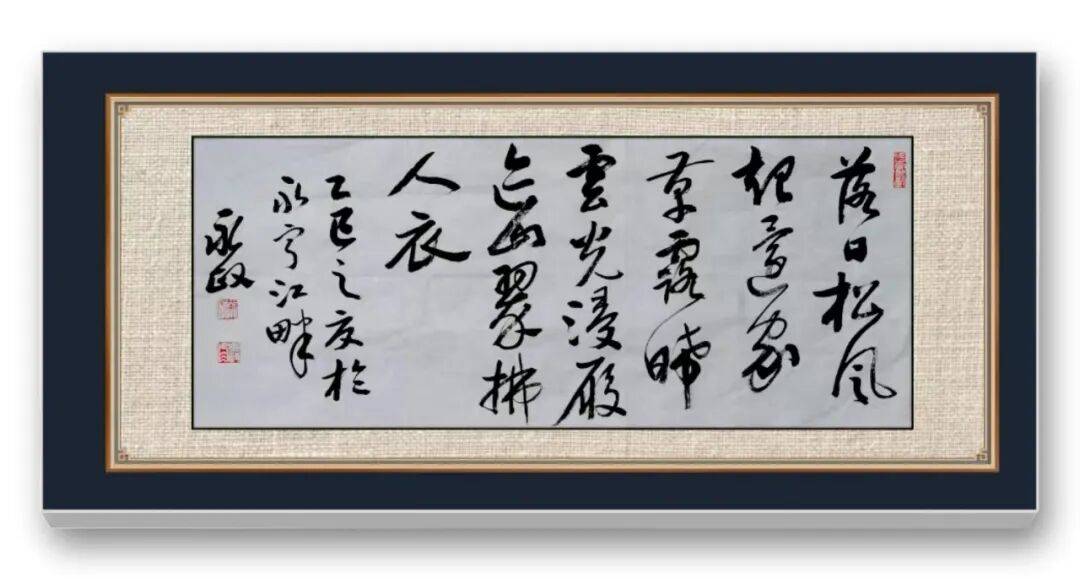 落日松風
起還家
草露晞
雲光侵履
迹山翠拂
人衣
乙巳之夏於
永宁江畔
永政